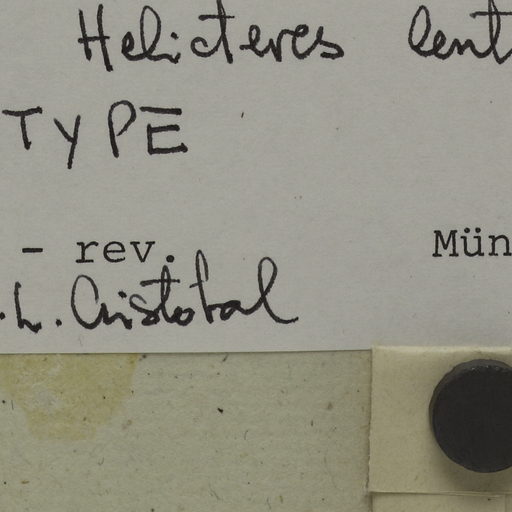 Helicteres lent
TYPE
- rev. Mün
.L. Cristobal